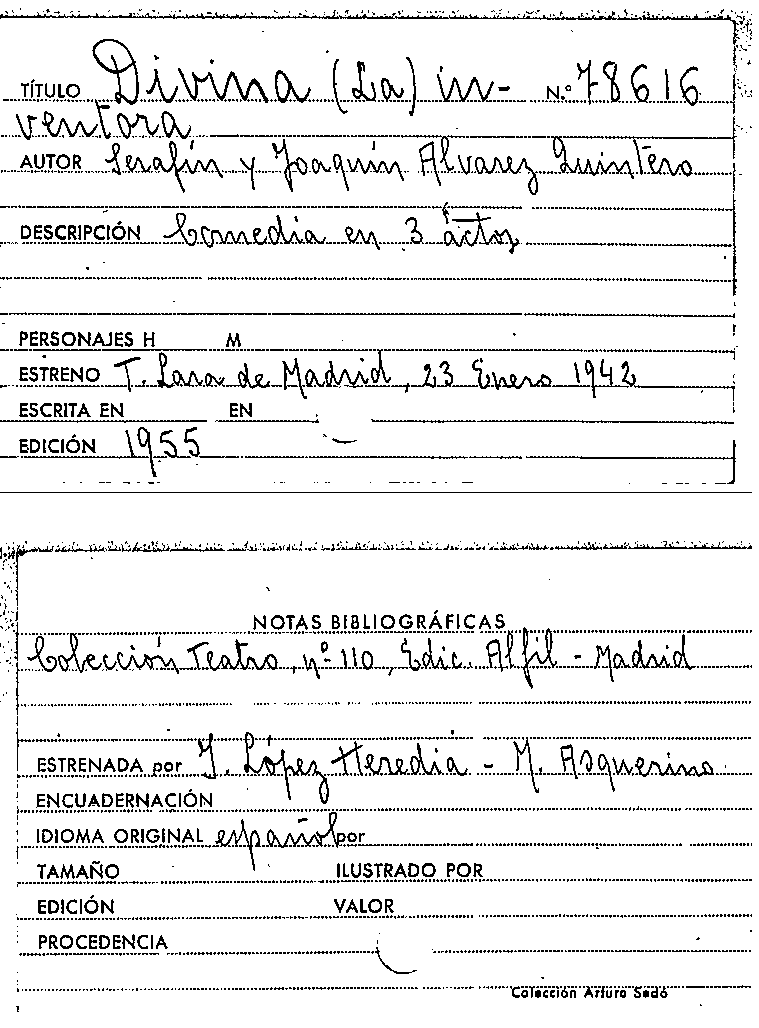 TÍTULO Divina (La) in- N.º 78616
ventora
AUTOR Serafín y Joaquín Alvarez Quintero
DESCRIPCIÓN Comedia en 3 actos
PERSONAJES H M
ESTRENO T. Lara de Madrid, 23 Enero 1942
ESCRITA EN EN
EDICIÓN 1955
NOTAS BIBLIOGRÁFICAS
Colección Teatro, nº 110, Edic. Alfil - Madrid
ESTRENADA por I. López Heredia - M. Asquerino
ENCUADERNACIÓN
IDIOMA ORIGINAL español por
TAMAÑO ILUSTRADO POR
EDICIÓN VALOR
PROCEDENCIA
Colección Arturo Sedó